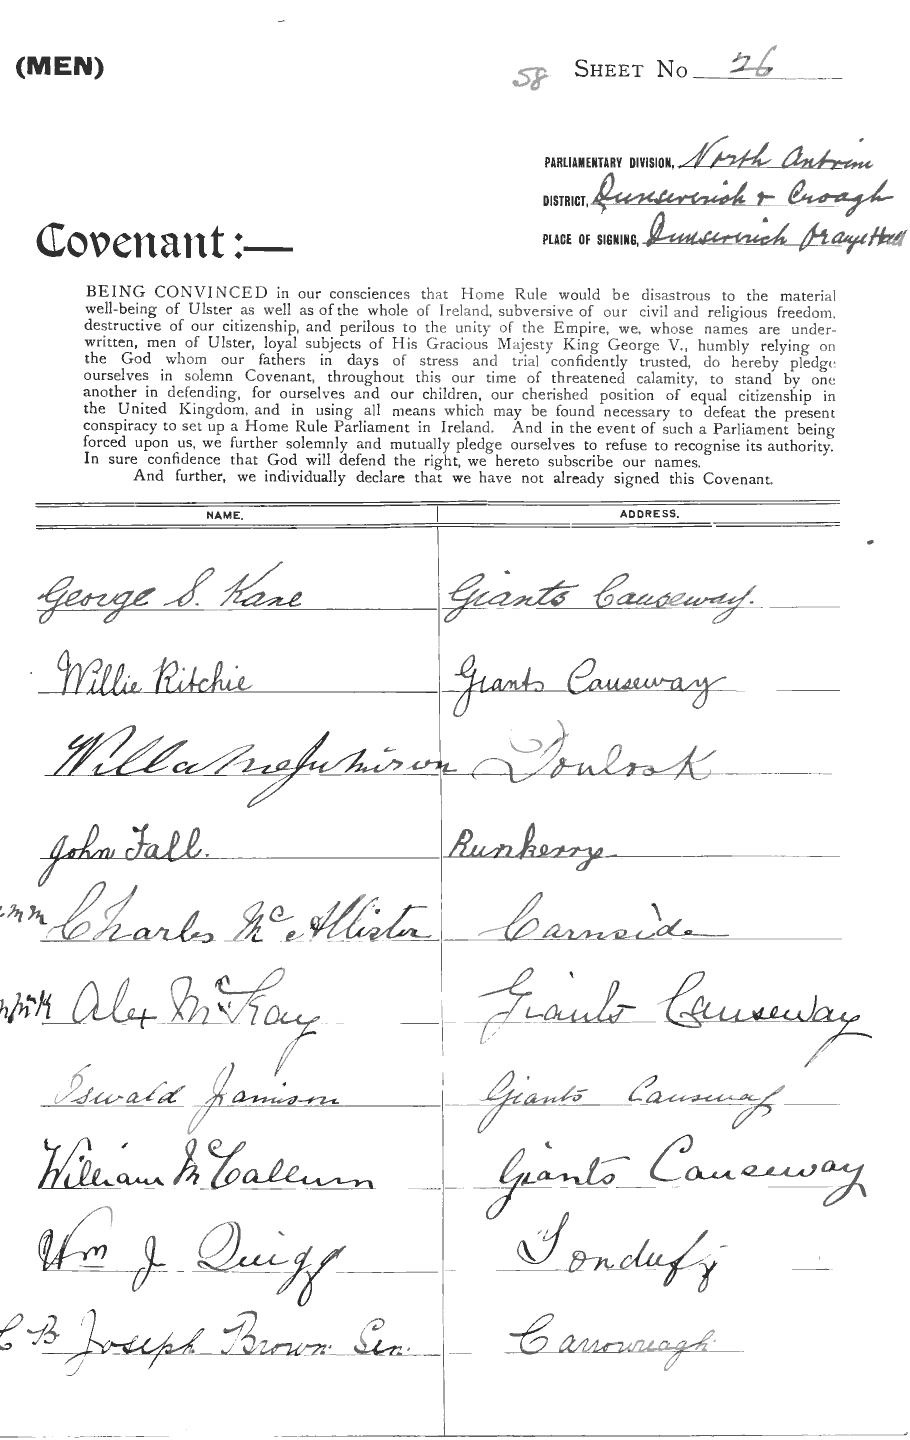 (MEN)
58 SHEET No 26
PARLIAMENTARY DIVISION, North Antrim
DISTRICT, Dunseverick & Croagh
PLACE OF SIGNING, Dunseverick Orange Hall
Covenant:—
BEING CONVINCED in our consciences that Home Rule would be disastrous to the material
well-being of Ulster as well as of the whole of Ireland, subversive of our civil and religious freedom,
destructive of our citizenship, and perilous to the unity of the Empire, we, whose names are under-
written, men of Ulster, loyal subjects of His Gracious Majesty King George V., humbly relying on
the God whom our fathers in days of stress and trial confidently trusted, do hereby pledge
ourselves in solemn Covenant, throughout this our time of threatened calamity, to stand by one
another in defending, for ourselves and our children, our cherished position of equal citizenship in
the United Kingdom, and in using all means which may be found necessary to defeat the present
conspiracy to set up a Home Rule Parliament in Ireland. And in the event of such a Parliament being
forced upon us, we further solemnly and mutually pledge ourselves to refuse to recognise its authority.
In sure confidence that God will defend the right, we hereto subscribe our names.
And further, we individually declare that we have not already signed this Covenant.
NAME. ADDRESS.
George S. Kane Giants Causeway.
Willie Ritchie Giants Causeway
John Fall. Runkerry
Charles McAllister Carnside
Alex McKay Giants Causeway
Oswald Jamison Giants Causeway
William McCallum Giants Causeway
Wm J Quigg Tonduff
C B Joseph Brown Sen. Carrowreagh